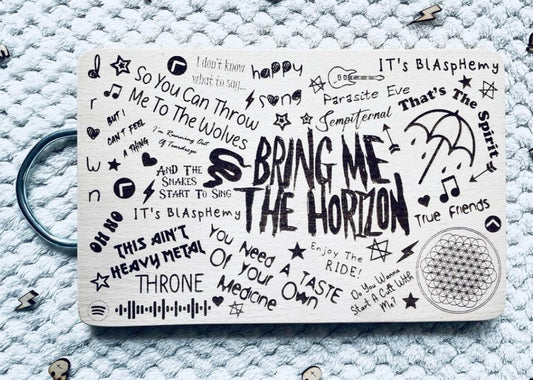 drown
I don't know
what to say...
happy
song
IT's BlAspHemy
So You Can Throw
Me To The Wolves
Parasite Eve
Sempiternal
That's The Spirit
BUT I
CAN'T FEEL
A THING
I'm Running Out
Of Teardrops
AND THE
SNAKES
START TO SING
BRING ME
THE HORIZON
IT's BlAspHemy
True Friends
OH NO
THIS AIN'T
HEAVY METAL
You Need A TASTE
Of Your Own
Medicine
Enjoy The
RIDE!
THRONE
Do You Wanna
Start A Cult With
Me?